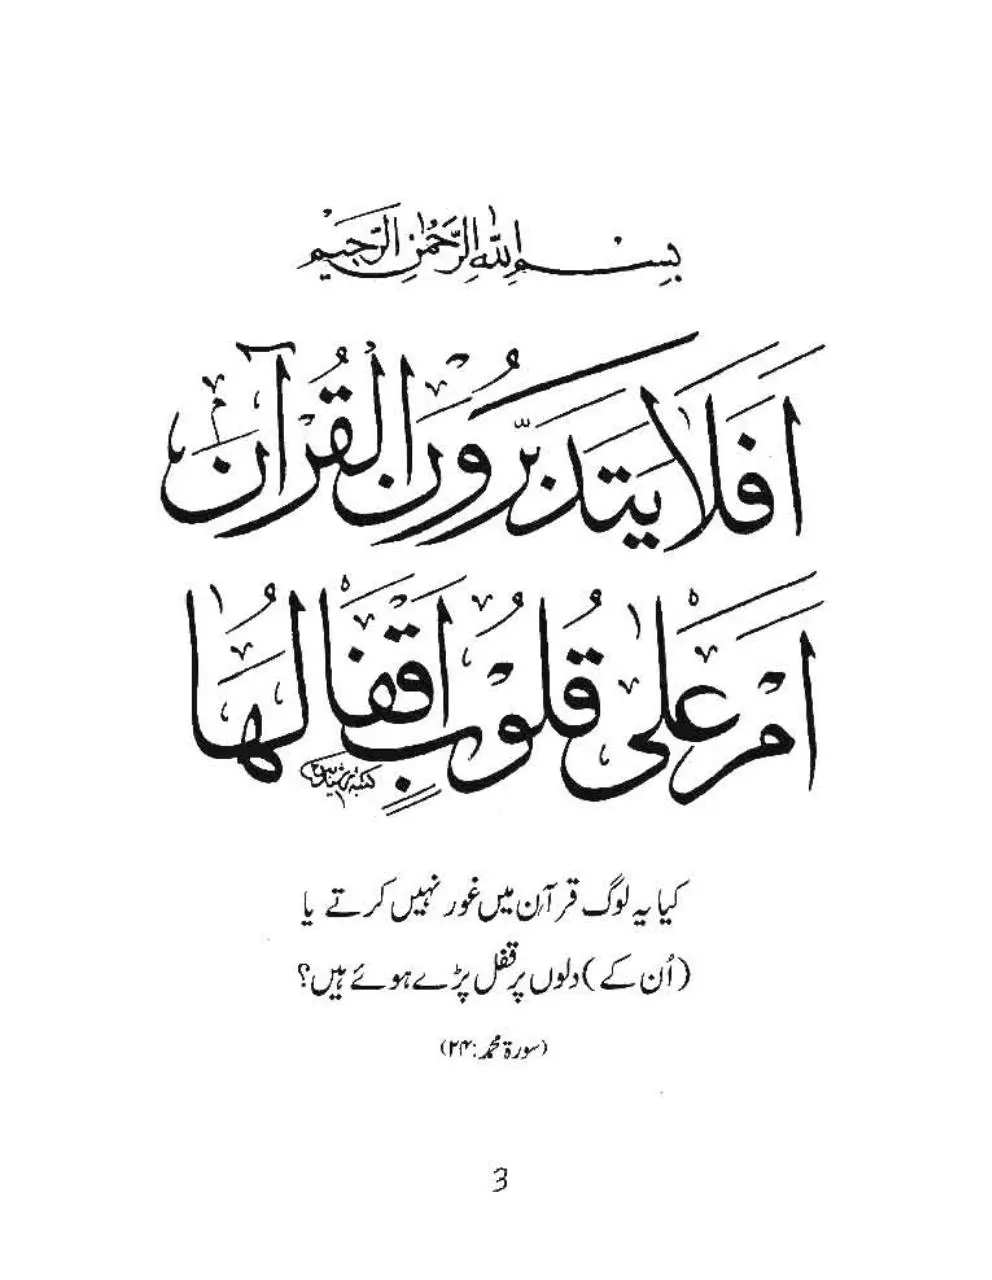 بِسْمِ اللّٰهِ الرَّحْمٰنِ الرَّحِيْمِ
اَفَلَا يَتَدَبَّرُوْنَ الْقُرْآنَ
اَمْ عَلٰى قُلُوْبٍ اَقْفَالُهَا
کیا یہ لوگ قرآن میں غور نہیں کرتے یا
(اُن کے) دلوں پر قفل پڑے ہوئے ہیں؟
(سورۃ محمد:۲۴)
3